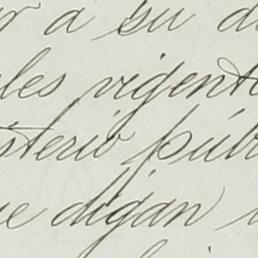 r a su d
les vigent
isterio púb
ue digan